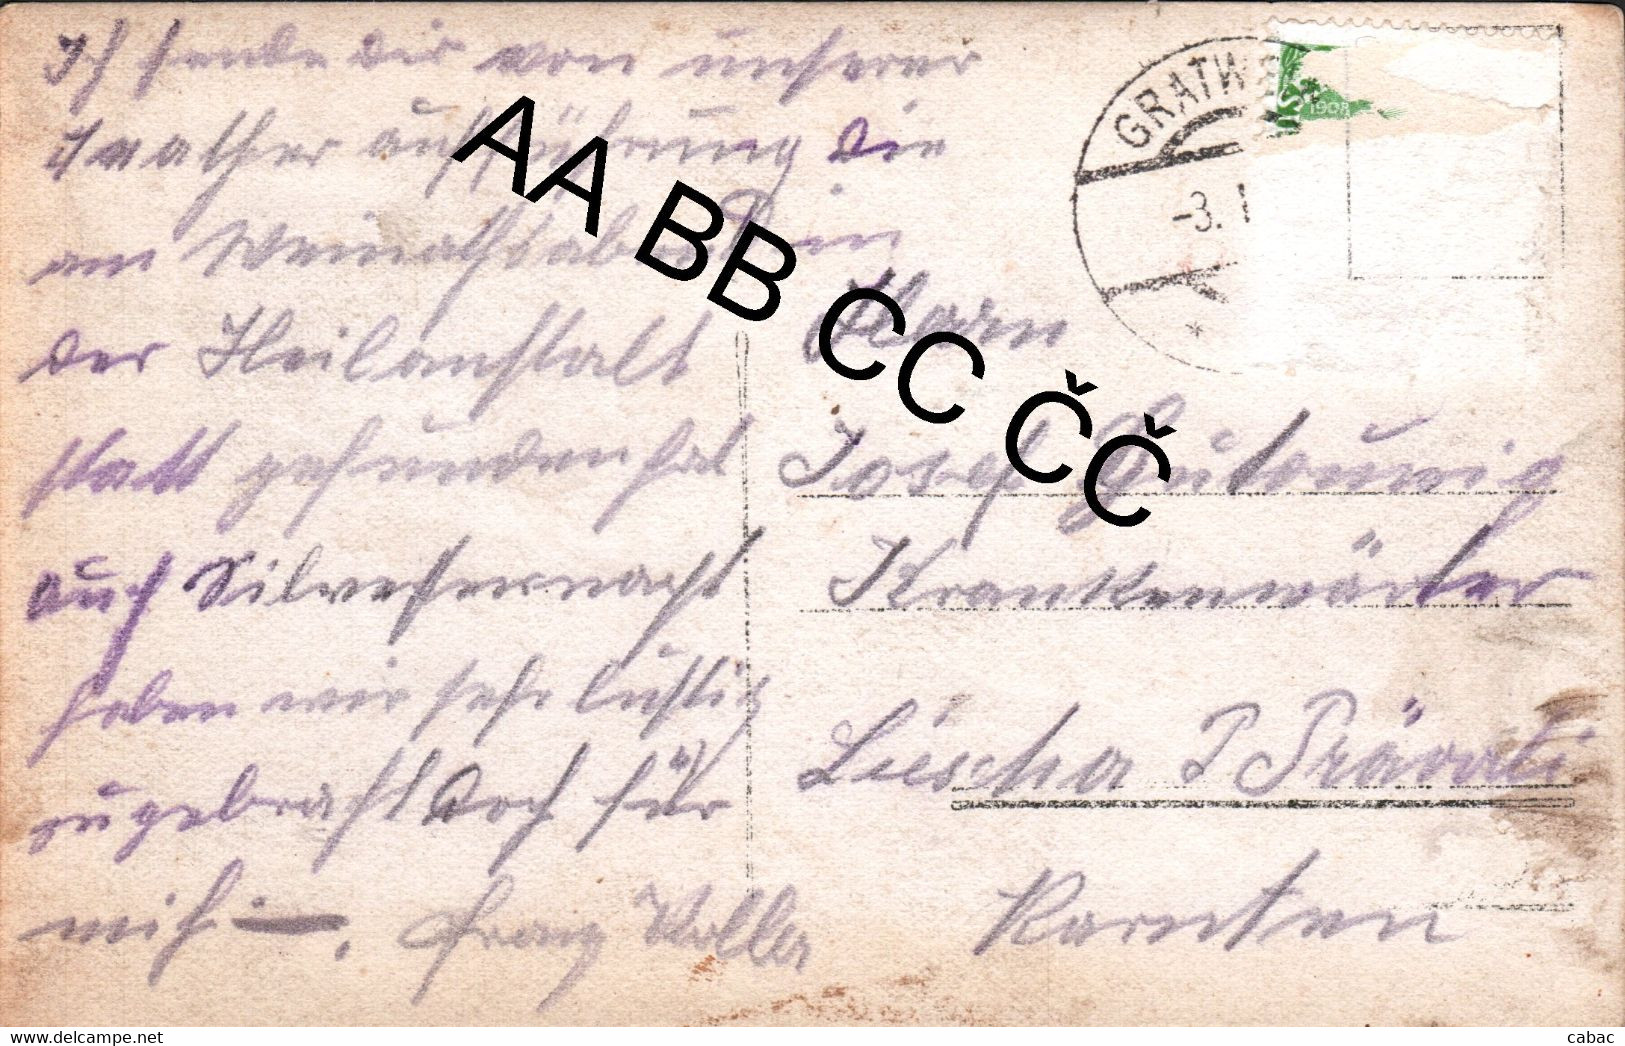 Ich sende dir von unserer
Theather aufführung die
am Weinachtsabend in
der Heilanstalt
statt gefunden hat
auch Silvesternacht
haben wir sehr lustig
zugebracht doch für
mich —. Franz Koller
GRATWEIN
-3. I
1908
Herrn
Josef
Krankenwärter
Liescha P Prävali
Karnten
AA BB CC ČČ
www.delcampe.net
cabac